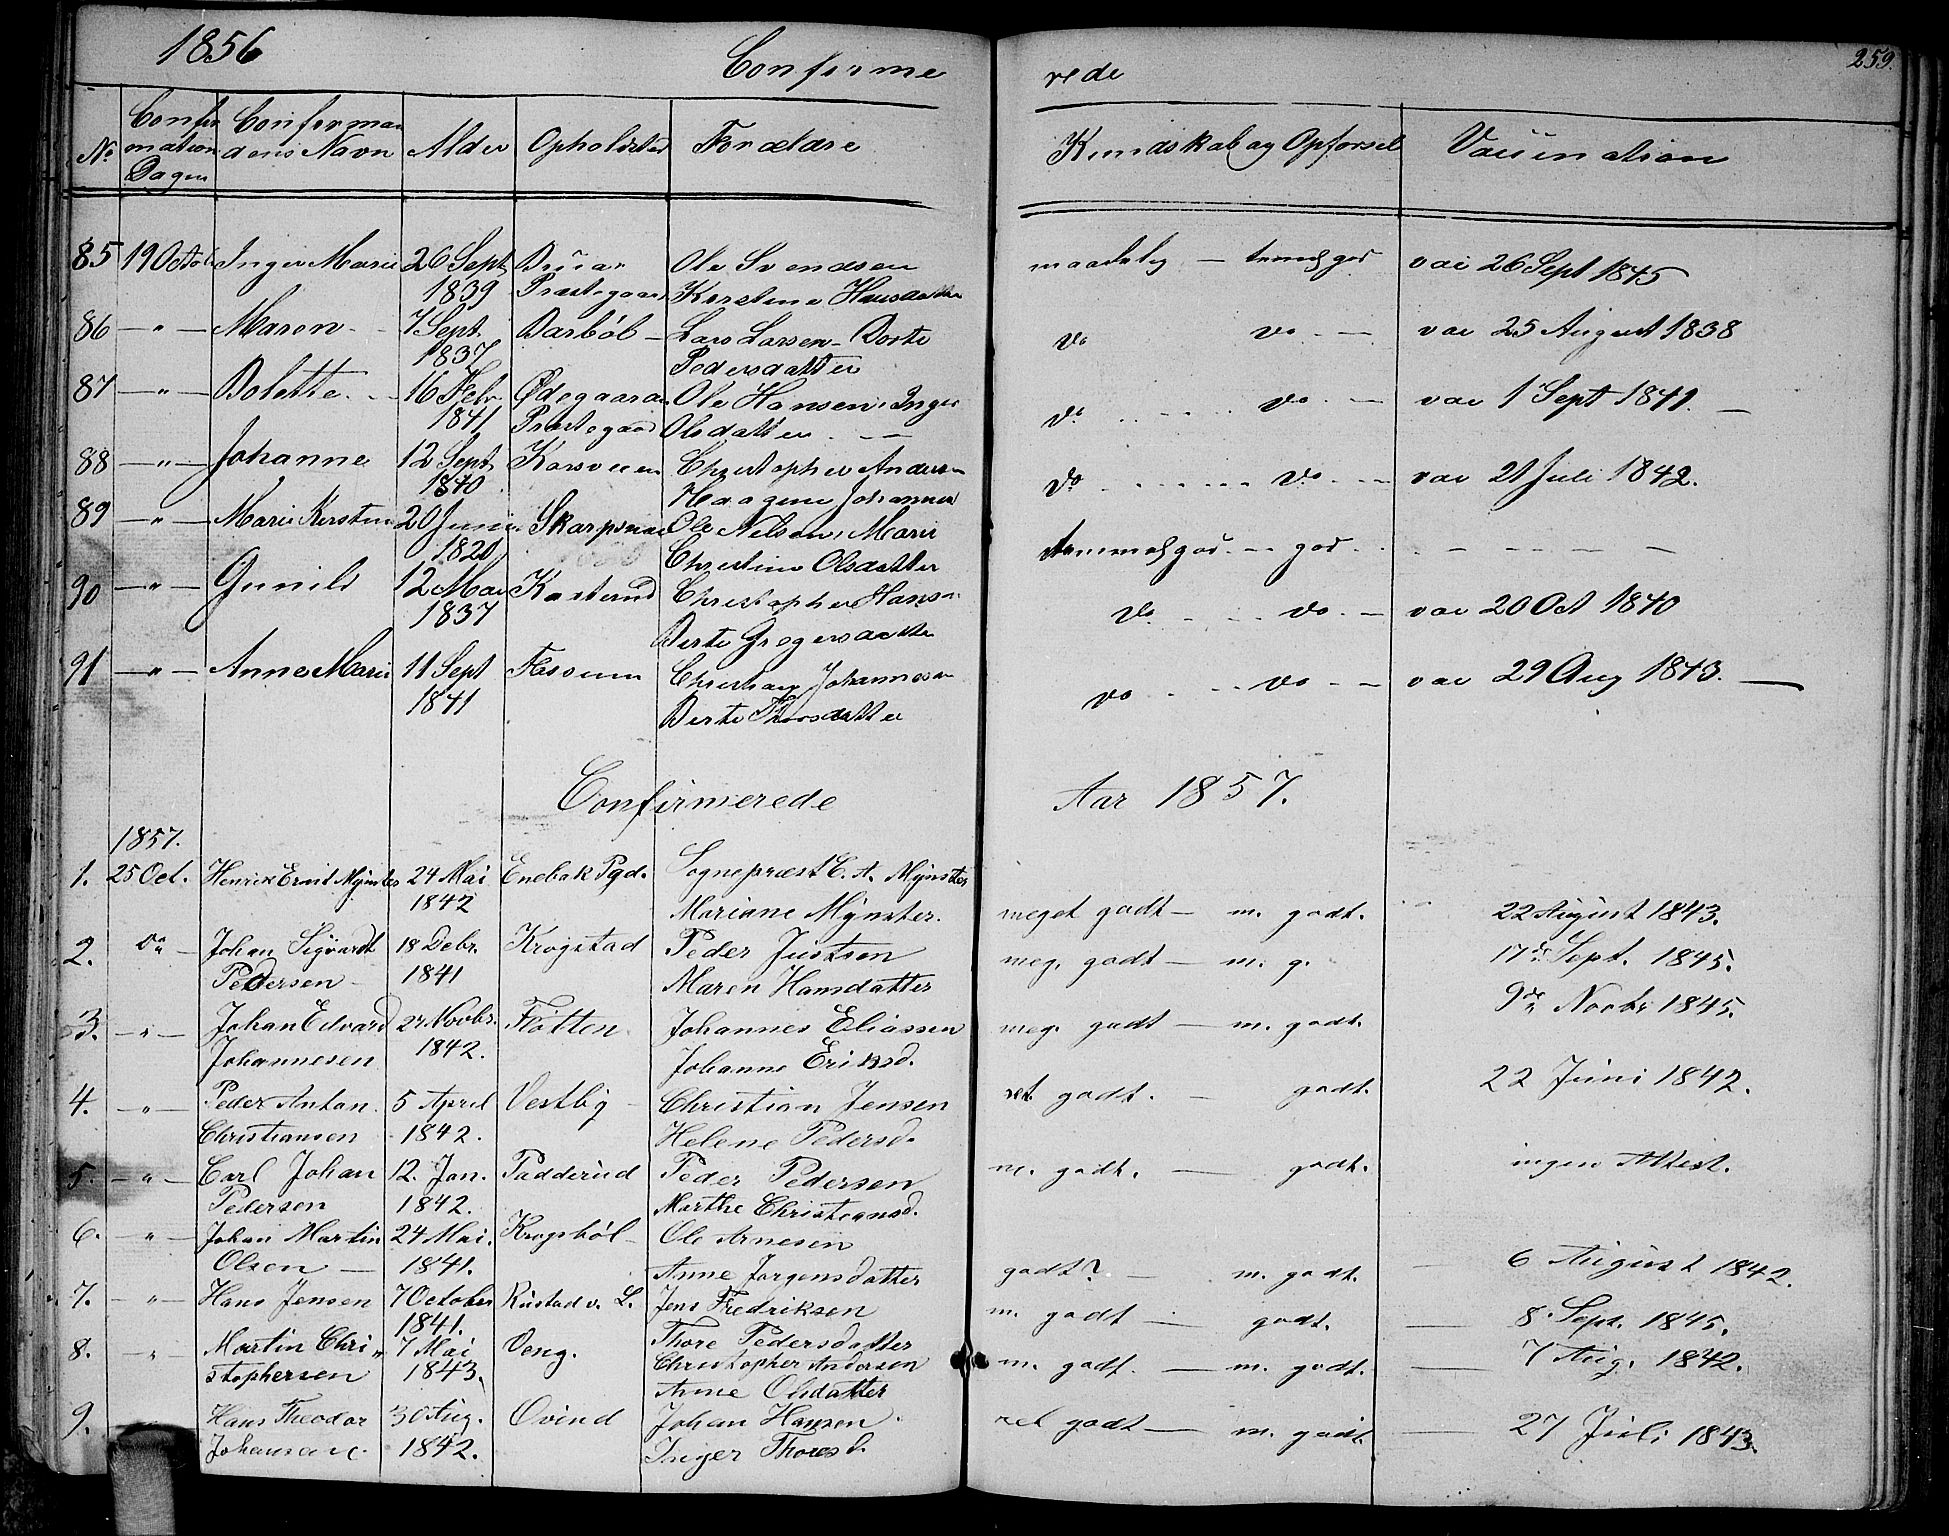 1856 Confirme rede 259.
No Confir mations Dagen Confirman dens Navn Alder Opholdsted Forældre Kundskab og Opførsel Vaccination
85 19 Octob Inger Marie 26 Sept 1839 Præstegaard Ole Svendsen Kirstine Hansdatter maadelig — temmelgod vac 26 Sept 1845
86 — " — Maren 7 Sept 1837 Barbøl Lars Larsen - Dorte Pedersdatter do do — vac 25 August 1838
87 — " — Bolette 16 Febr 1841 Ødegaarden Præstegaard Ole Hansen, Inger Olsdatter do do — vac 1 Sept 1841. —
88 — " — Johanne 12 Sept 1840 Korsveien Christopher Andersen Haagine Johannes do do — vac 21 Juli 1842.
89 — " — Marie Kirstine 20 Juni 1820 Skarpsnoe Ole Nelson, Marie Christine Olsdatter temmelgod — god
90 — " — Gunild 12 Mar 1837 Kasterud Christopher Hansen Berte Gregersdatter do do — vac 20 Oct 1840
91 — " — Anne Marie 11 Sept 1841 Fossum Christian Johannesen Berte Thorsdatter do do — vac 29 Aug 1843. —
Confirmerede Aar 1857.
1857.
1. 25 Oct. Henrik Ernst Mynster 24 Mai 1842 Enebak Pgd. Sognepræst C. A. Mynster Mariane Mynster. meget godt — m. godt. 22 August 1843.
2. do Johan Sigvardt Pedersen 18 Debr. 1841 Krogstad Peder Justsen Maren Hansdatter meg. godt — m. g. 17de Sept. 1845.
3. — " — Johan Edvard Johannesen 27 Novbr. 1842. Fløtten Johannes Eliassen Johanne Eriksd. meg. godt — m. godt. 9de Novbr 1845.
4. — " — Peder Anton Christiansen 5 April 1842. Vestby Christian Jensen Helene Pedersd. ret godt. — godt. 22 Juni 1842.
5. — " — Carl Johan Pedersen 12. Jan. 1842. Tadderud Peder Pedersen Marthe Christiansd. m. godt. — godt. ingen Attest.
6. — " — Johan Martin Olsen — 24 Mai. 1841. Krogsbøl Ole Arnesen Anne Jørgensdatter godt? — m. godt. — 6 August 1842.
7. — " — Hans Jensen 7 October 1841. Rustad v. L. Jens Fredriksen Thore Pedersdatter m. godt — godt. — 8. Sept. 1845.
8. — " — Martin Chri„ stophersen 7 Mai 1843. Veng. Christopher Andersen Anne Olsdatter m. godt. — m. godt. — 7 Aug. 1842.
9. Hans Theodor Johansen. 30 Aug. 1842. Ovind Johan Hansen. Inger Thoresd. ret godt — m. godt. — 27 Juli 1843.